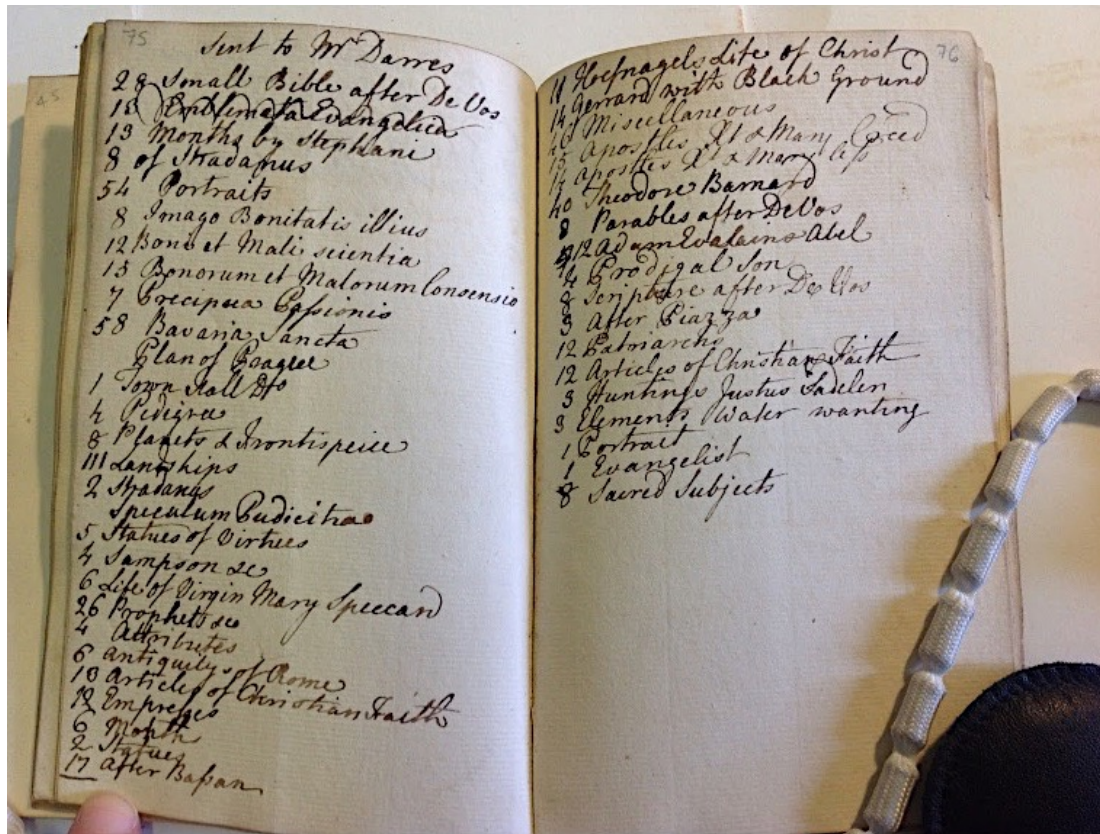 75
Sent to Mr Darres
28 Small Bible after De Vos
18 Emblemata Evangelica
13 Months by Stephani
8 of Stradanus
54 Portraits
8 Imago Bonitatis illius
12 Boni et Mali scientia
15 Bonorum et Malorum Consensio
7 Precipua Passionis
58 Bavaria Sancta
Plan of Prague
1 Town Hall Do
4 Pedigree
8 Planets & Frontispeice
111 Landships
2 Stradanus
Speculum Pudicitiae
5 Statues of Virtues
4 Sampson &c
6 Life of Virgin Mary Speccard
26 Prophets &c
4 Attributes
6 Antiquitys of Rome
13 Articles of Christian Faith
12 Empresses
6 Month
2 Statues
17 After Bassan
45
76
11 Hefnagels Life of Christ
14 Gerrard with Black Ground
Miscellaneous
15 Apostles Xt & Mary Creed
Apostles Xt & Mary less
40 Theodore Barnard
8 Parables after De Vos
12 Adam Eva Cain & Abel
4 Prodigal Son
8 Scripture after De Vos
3 After Piazza
12 Patriarchs
12 Articles of Christian Faith
3 Huntings Justus Sadelen
3 Elements Water wanting
1 Portrait
1 Evangelist
8 Sacred Subjects